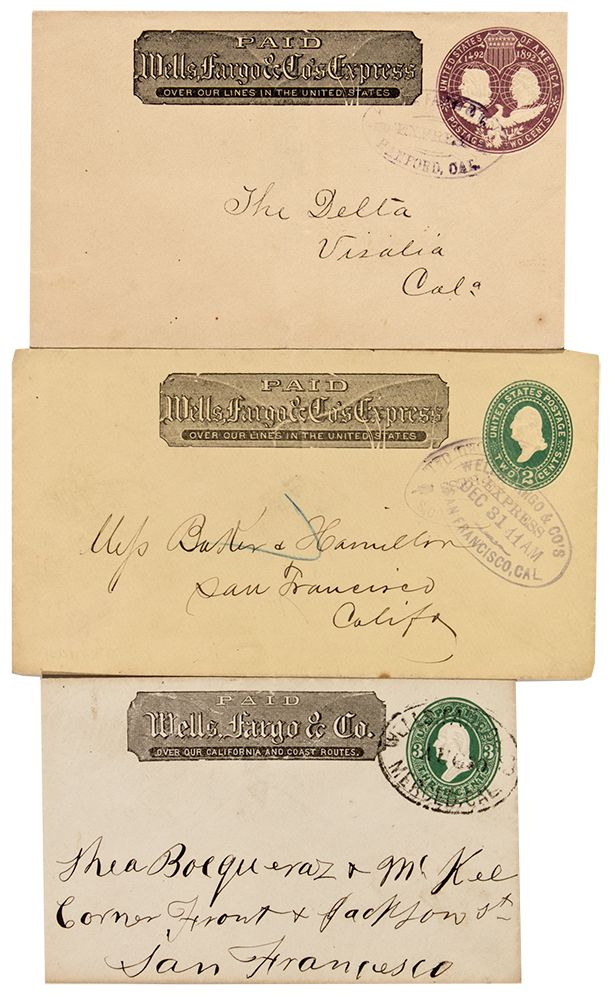 PAID
Wells, Fargo & Co's Express
OVER OUR LINES IN THE UNITED STATES
UNITED STATES OF AMERICA
1492 1892
POSTAGE TWO CENTS
HANFORD, CAL.
The Delta
Visalia
Cala
PAID
Wells, Fargo & Co's Express
OVER OUR LINES IN THE UNITED STATES
UNITED STATES POSTAGE
TWO 2 CENTS
WELLS, FARGO & CO'S
EXPRESS
DEC 31 11 AM
SAN FRANCISCO, CAL.
Mess Baker & Hamilton
San Francisco
Califa
PAID
Wells, Fargo & Co.
OVER OUR CALIFORNIA AND COAST ROUTES.
3 3
WELLS
MERCED, CAL.
Shea Bocqueraz & Mc Kee
Corner Front & Jackson st
San Francesco